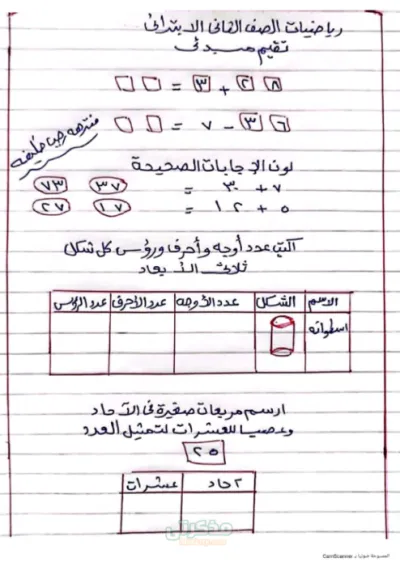 رياضيات الصف الثاني الابتدائي
تقيم مبدئي
٢٨ + ٣ =
٣٦ - ٧ =
لون الإجابات الصحيحة
٧ + ٣٠ = ٣٧ ٧٣
٥ + ١٢ = ١٧ ٢٧
اكتب عدد أوجه وأحرف ورؤس كل شكل
ثلاثي الأبعاد
الاسم الشكل عدد الأوجه عدد الأحرف عدد الرؤس
اسطوانه
ارسم مربعات صغيرة في الآحاد
وعصيا للعشرات لتمثيل العدد
٢٥
آحاد عشرات
مذكرتي
الممسوحة ضوئيا بـ CamScanner